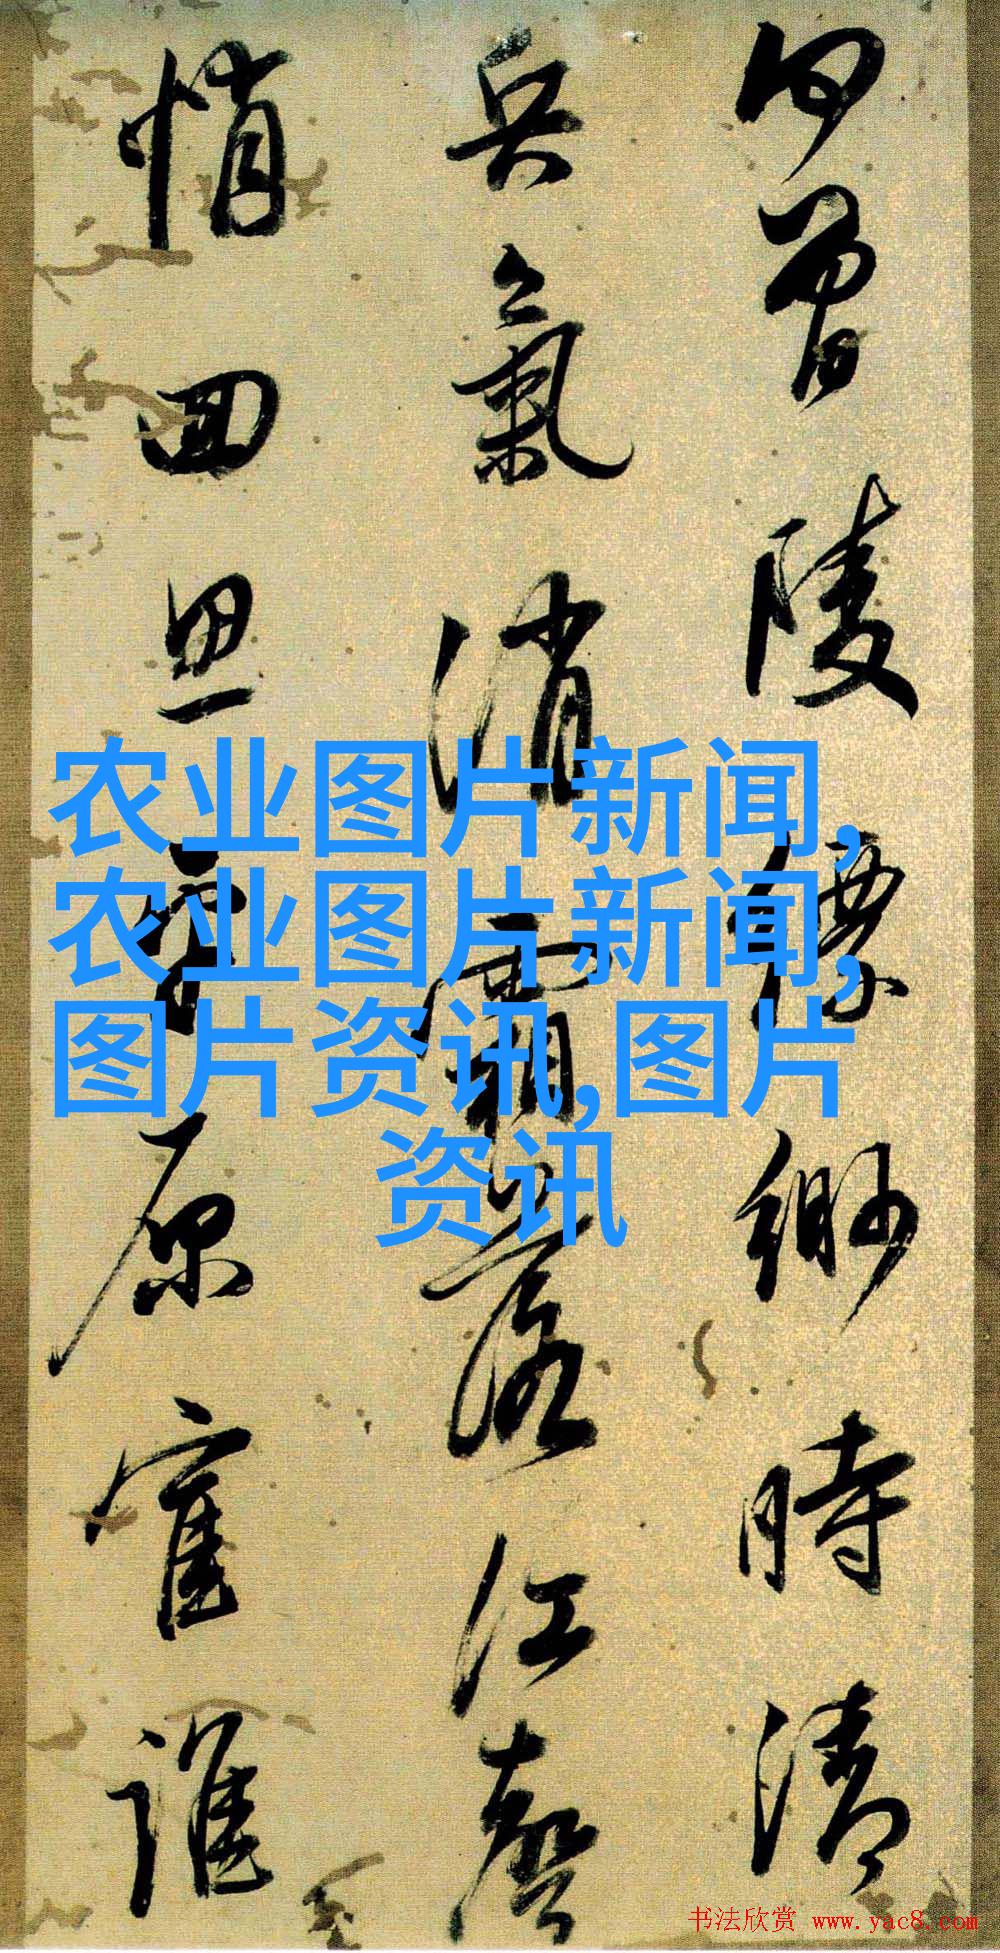 何曾陵
缥缈時清
兵氣消
霜落江聲
悄回思
原官誰
农业图片新闻,
农业图片新闻,
图片资讯,图片
资讯
书法欣赏 www.yac8.com